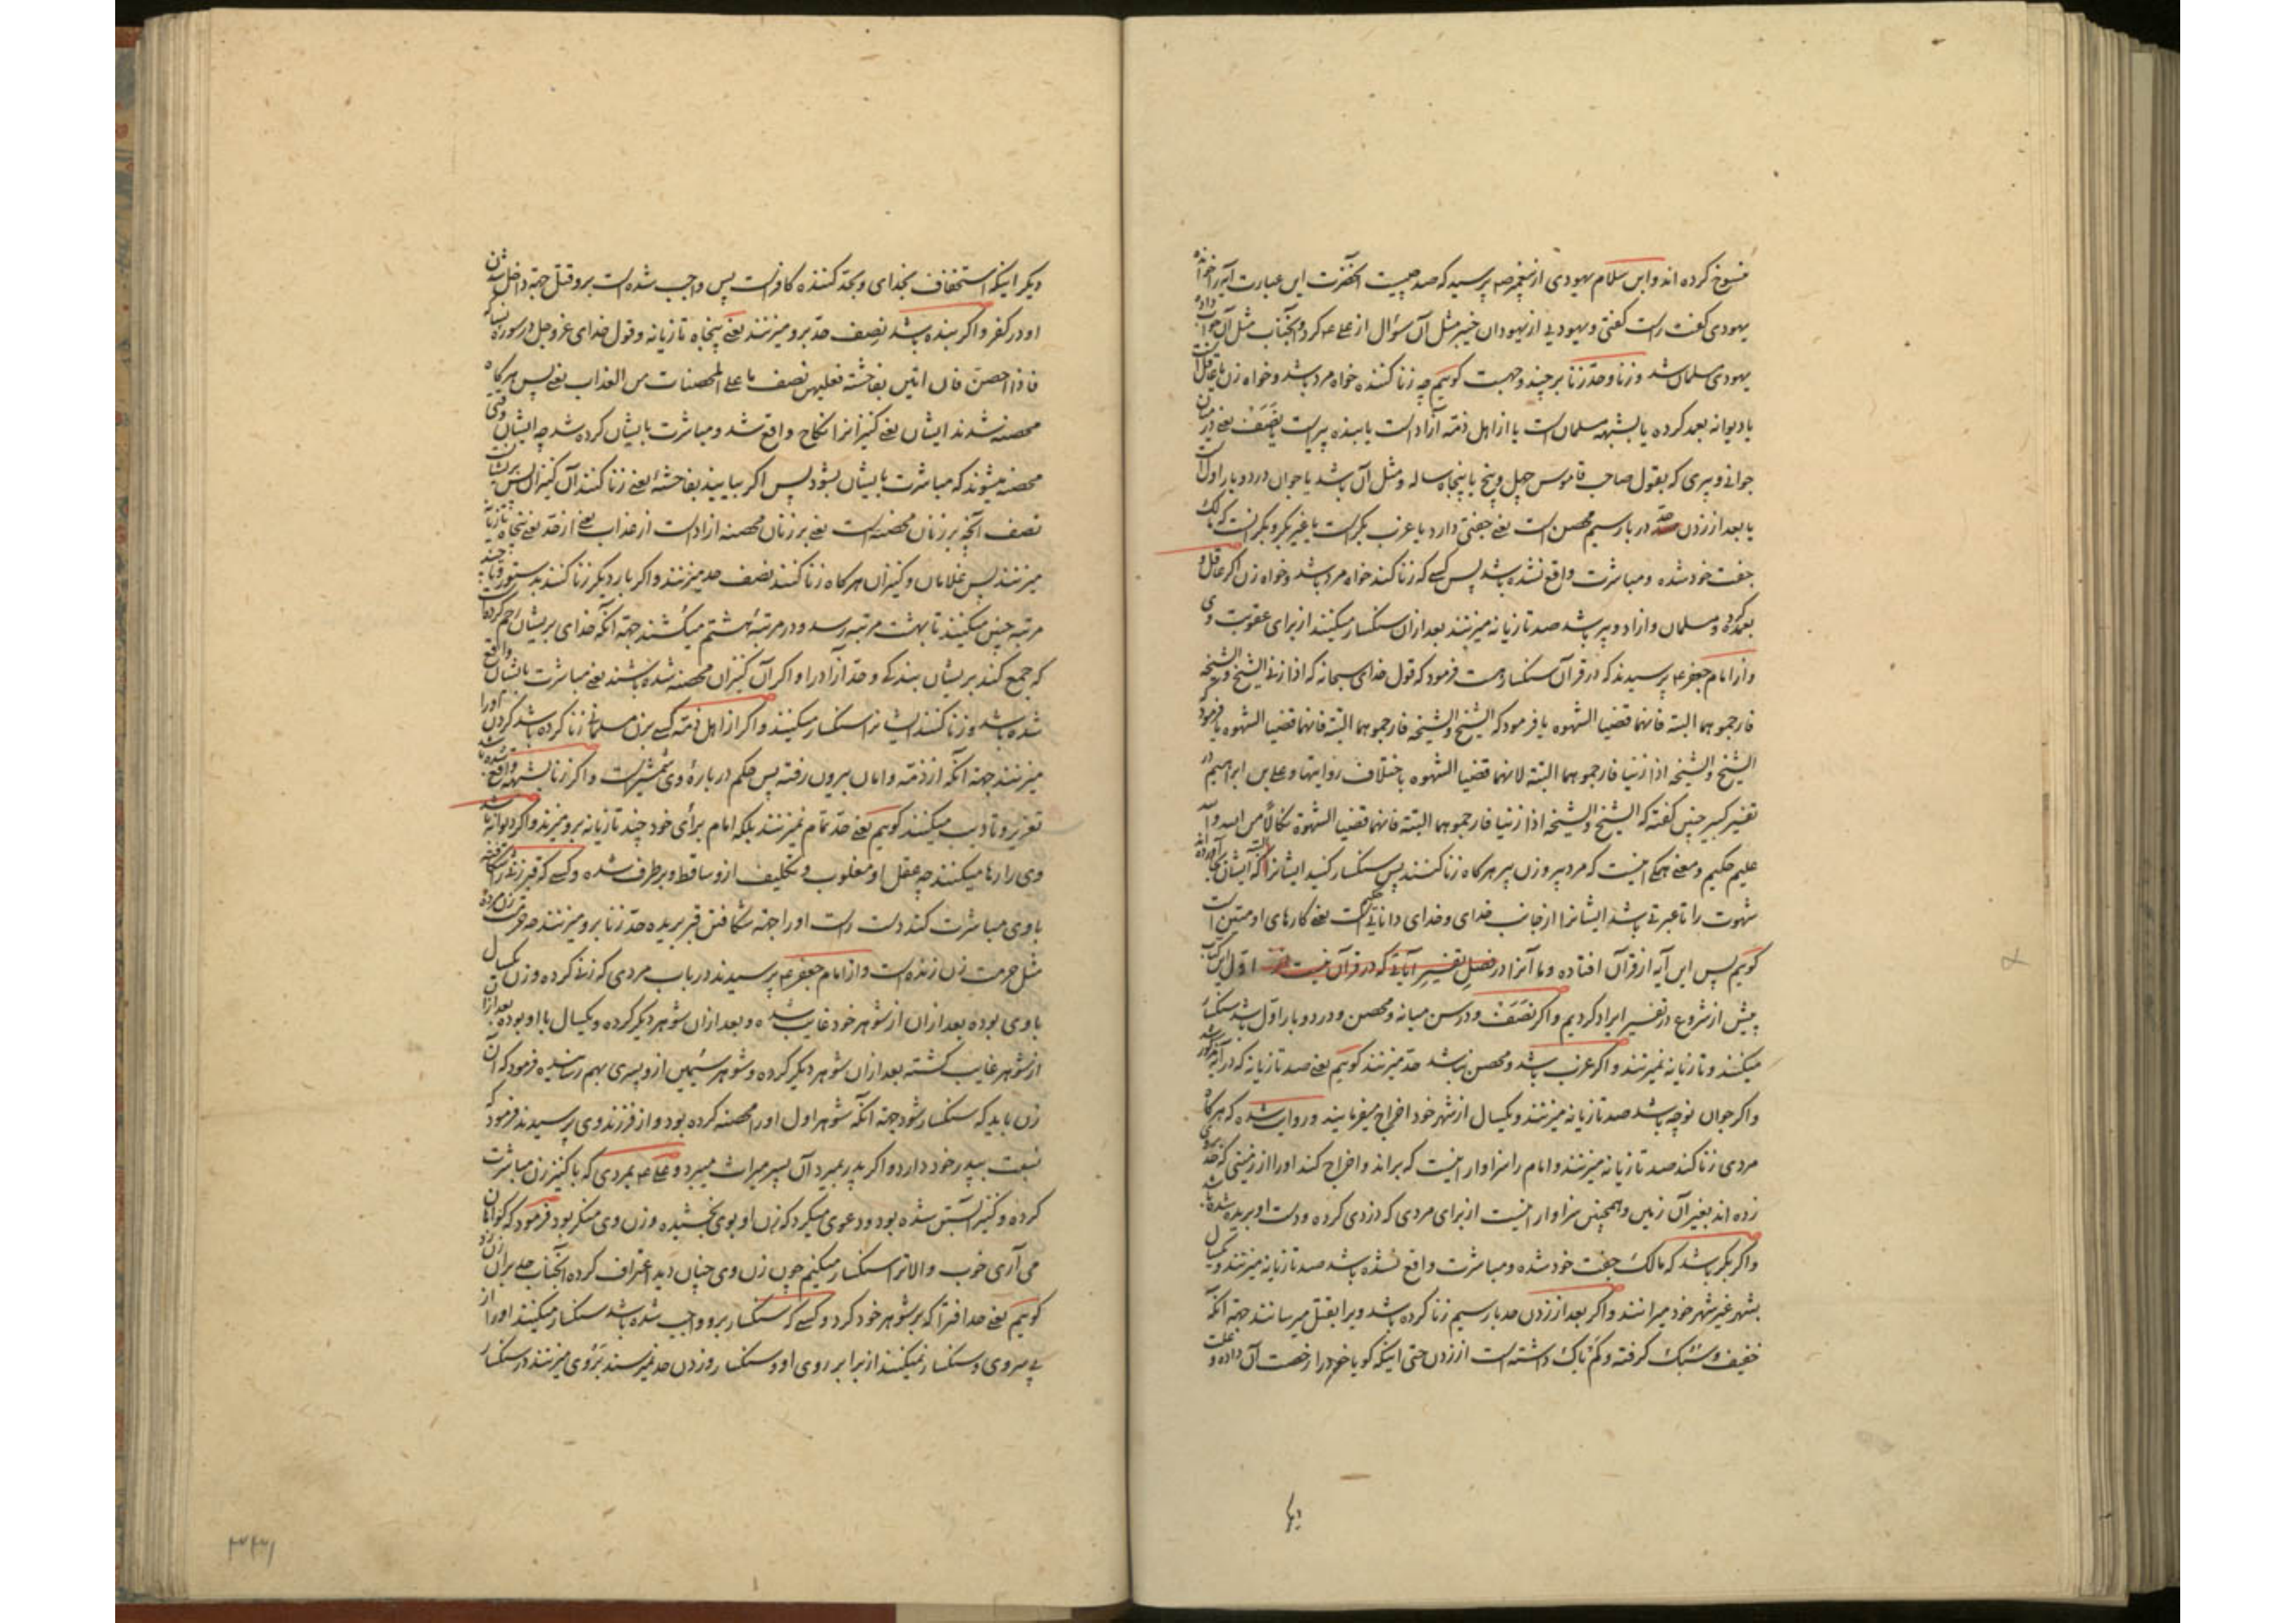 منسوخ کرده اند وابن سلام یهودی از پیغمبر صه پرسید که صد چیست آنحضرت این عبارت آیه را خوانده
یهودی گفت راست گفتی و یهودیی از یهودان خیبر مثل آن سؤال از علی عه کرد و آنجناب مثل آن جواب داده
یهودی مسلمان شد و زنا و حدّ زنا بر چند وجهست کوییم چه زنا کننده خواه مرد باشد و خواه زن یا عاقل است
یا دیوانه بعمد کرده یا بشبهه مسلمان است یا از اهل ذمّه آزاد است یا بنده پیر است یا نَصَفْ یعنی در میان
جوانی و پیری که بقول صاحب قاموس چهل و پنج یا پنجاه ساله و مثل آن باشد یا جوان در دو بار اول است
یا بعد از زدن حدّ در بار سیم محصن است یعنی جفتی دارد یا عزب بکر است یا غیر بکر و بکر آنست که مالک
جفت خود شده و مباشرت واقع نشده باشد پس کسی که زنا کند خواه مرد باشد و خواه زن اگر عاقل و
بعمد کرده و مسلمان و ازاد و پیر باشد صد تازیانه میزنند بعد ازان سنگسار میکنند از برای عقوبت وی
و از امام جعفر عه پرسیدند که در قرآن سنگسار هست فرمود که قول خدای سبحانه که اذا زنی الشیخ و الشیخه
فارجموهما البتة فانهما قضیا الشهوه یا فرمود که الشیخ و الشیخه فارجموهما البتة فانهما قضیا الشهوه یا فرمود
الشیخ و الشیخه اذا زنیا فارجموهما البتة لانهما قضیا الشهوه باختلاف روایتها و علی بن ابراهیم در
تفسیر کبیر چنین گفته که الشیخ و الشیخه اذا زنیا فارجموهما البتة فانهما قضیا الشهوة نکالاً من الله و الله
علیم حکیم و معنی همگی اینست که مرد پیر و زن پیر هرگاه زنا کنند پس سنگسار کنید ایشانرا البته که ایشان بجا آورده اند
شهوت را تا عبرتی باشد ایشانرا از جانب خدای و خدای دانای حکیم است یعنی کارهای او متین است
کوییم پس این آیه از قرآن افتاده و ما آنرا در فصل تفسیر آیاتی که در قرآن نیست اوّل این کتاب
پیش از شروع در تفسیر ایراد کردیم و اگر نَصَفْ و در سن میانه و محصن و در دو بار اوّل باشد سنگسار
میکنند و تازیانه نمیزنند و اگر عزب باشد و محصن نباشد حدّ میزنند کوییم یعنی صد تازیانه که در آیه مزبور شد
و اگر جوان نوچه باشد صد تازیانه میزنند و یکسال از شهر خود اخراج میفرمایند و روایت شده که هرگاه
مردی زنا کند صد تازیانه میزنند و امام را سزاوار اینست که براند و اخراج کند او را از زمینی که حد بروی
زده اند بغیر آن زمین و همچنین سزاوار اینست از برای مردی که دزدی کرده و دست او بریده شده باشد
و اگر بکر باشد که مالک جفت خود شده و مباشرت واقع نشده باشد صد تازیانه میزنند و یکسال
بشهر غیر شهر خود میرانند و اگر بعد از زدن حد بار سیم زنا کرده باشد ویرا بقتل میرسانند جهة آنکه
خفیف و سبک گرفته و کم باک داشته است از زدن حتی اینکه گویا خود را رخصت آن داده و علت
دیگر
دیگر اینکه استخفاف بخدای و بحدّ کننده کافر است پس واجب شده است برو قتل جهة داخل شدن
او در کفر و اگر بنده باشد نصف حدّ برو میزنند یعنی پنجاه تازیانه و قول خدای عز و جل در سوره نساء که
فاذا احصنّ فان اتین بفاحشة فعلیهن نصف ما علی المحصنات من العذاب یعنی پس هرگاه
محصنه شدند ایشان یعنی کنیزانرا نکاح واقع شد و مباشرت بایشان کرده شد چه ایشان وقتی
محصنه میشوند که مباشرت بایشان بشود پس اگر بیایند بفاحشهٔ یعنی زنا کنند آن کنیزان پس بریشانست
نصف آنچه بر زنان محصنه است یعنی بر زنان محصنه ازاد است از عذاب یعنی از حدّ یعنی پنجاه تازیانه
میزنند پس غلامان و کنیزان هرگاه زنا کنند نصف حد میزنند و اگر بار دیگر زنا کنند بدستور و تا چند
مرتبه چنین میکنند تا بهشت مرتبه رسد و در مرتبهٔ هشتم میکشند جهة آنکه خدای بریشان رحم کرده است
که جمع کند بریشان بندگی و حدّ آزاد را و اگر آن کنیزان محصنه شده باشند یعنی مباشرت بایشان واقع
شده باشد و زنا کنند ایشانرا سنگسار میکنند و اگر از اهل ذمّه کسی بزن مسلمانی زنا کرده باشد گردن او را
میزنند جهة آنکه از ذمّه و امان بیرون رفته پس حکم دربارهٔ وی شمشیر است و اگر زنا بشبهه واقع شده باشد
تعزیر و تادیب میکنند کوییم یعنی حدّ تمام نمیزنند بلکه امام برای خود چند تازیانه برو میزند و اگر دیوانه باشد
وی را رها میکنند چه عقل او مغلوب و تکلیف ازو ساقط و برطرف شده و کسی که قبر زنی را شکافته
با وی مباشرت کند دست راست او را جهة شکافتن قبر بریده حدّ زنا برو میزنند چه حرمت زن مرده
مثل حرمت زن زنده است و از امام جعفر عه پرسیدند در باب مردی که زنی کرده و زن یکسال
با وی بوده بعد ازان از شوهر خود غایب شده و بعد ازان شوهر دیگر کرده و یکسال با او بوده بعد ازان
از شوهر غایب گشته بعد ازان شوهر دیگر کرده و شوهر سیُمین ازو پسری بهم رسانیده فرمود که آن
زن باید که سنگسار شود جهة آنکه شوهر اول او را محصنه کرده بود و از فرزند وی پرسیدند فرمود که
نسبت بپدر خود دارد و اگر پدر بمیرد آن پسر میراث میبرد و علی عه بمردی که با کنیز زن مباشرت
کرده و کنیز آبستن شده بود و دعوی میکرد که زن او بوی بخشیده و زن وی منکر بود فرمود که گواهان
می آری خوب و الا ترا سنگسار میکنیم چون زن وی چنان دید اعتراف کرده آنجناب حد بران زن زد
کوییم یعنی حد افترا که بر شوهر خود کرد و کسی که سنگسار برو واجب شده باشد سنگسار میکنند او را از
پی سر وی و سنگسار نمیکنند از برابر روی او و سنگسار و زدن حد نمیرسند بروی میزنند در سنگسار
۳۳۱